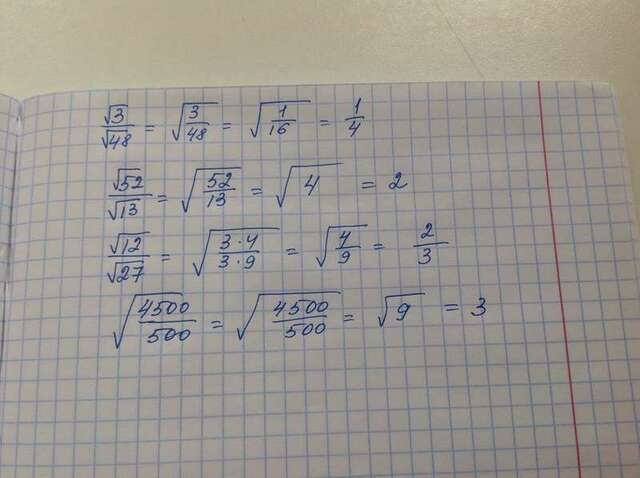 √3/√48 = √(3/48) = √(1/16) = 1/4
√52/√13 = √(52/13) = √4 = 2
√12/√27 = √(3·4/3·9) = √(4/9) = 2/3
√(4500/500) = √(4500/500) = √9 = 3